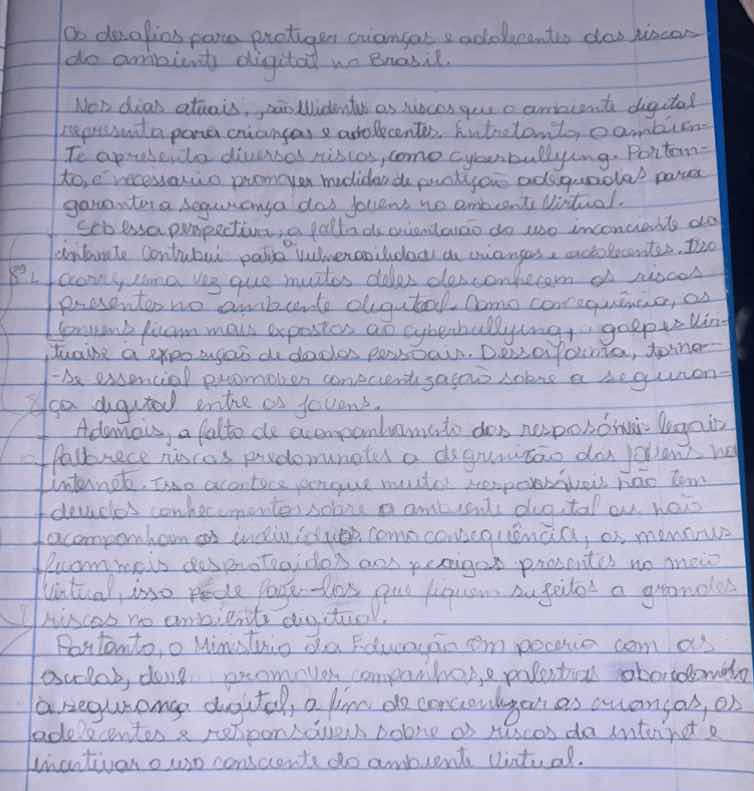 Os desafios para protiger crianças e adolecentes dos riscos
do ambiente digital no Brasil.
Nos dias atuais, são evidentes os riscos que o ambiente digital
representa para crianças e adolecentes. Entretanto, o ambien-
te apresenta diversos riscos, como cyberbullying. Portan-
to, é necessario promover medidas de proteção adequadas para
garantir a segurança dos jovens no ambiente virtual.
Sob essa perspectiva, a falta de orientação do uso inconciente da
internete contribui para a vulnerabilidade de crianças e adolecentes. Isso
ocorre, uma vez que muitos deles desconhecem os riscos
presentes no ambiente digital. Como consequência, os
jovens ficam mais expostos ao cyberbullying, golpes vir-
tuais e a exposição de dados pessoais. Dessa forma, torna-
-se essencial promover conscientização sobre a seguran-
ça digital entre os jovens.
Ademais, a falta de acompanhamento dos resposáveis legais
falbrece riscos predominates a dos jovens na
internete. Isso acontece, porque muitos resposáveis não tem
devidos conhecimentos sobre o ambiente digital ou não
acompanham os individuos. Como consequência, os menores
ficam mais desprotegidos aos perigos presentes no meio
virtual, isso pode faze-los que fiquem sujeitos a grandes
riscos no ambiente digitual.
Portanto, o Ministério da Educação em poceria com as
escolas, deve promover companhas, e palestras abordando
a segurança digital, a fim de concientizar as crianças, os
adolecentes e responsáveis sobre os riscos da internet e
incentivar o uso consciente do ambiente virtual.